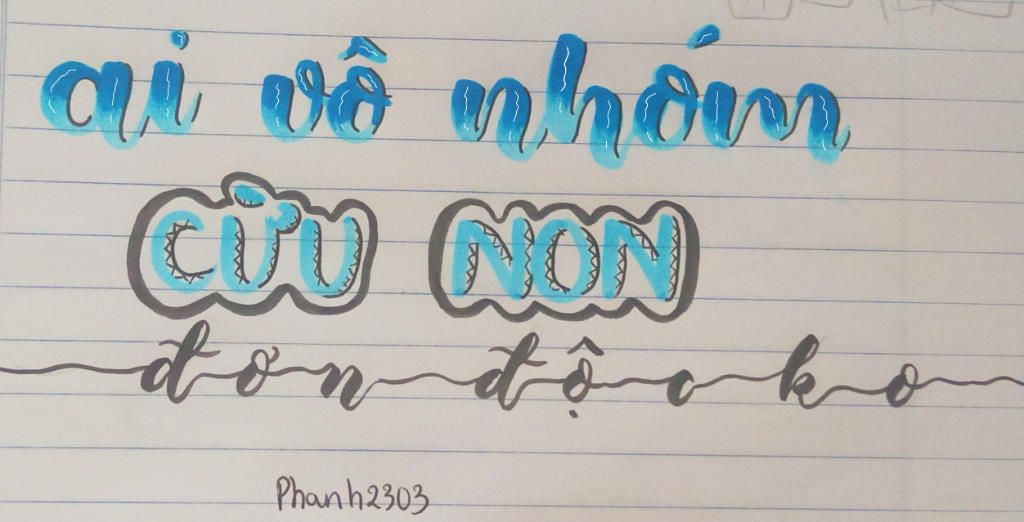 ai vô nhóm
CỪU NON
đơn độc ko
Phanh2303